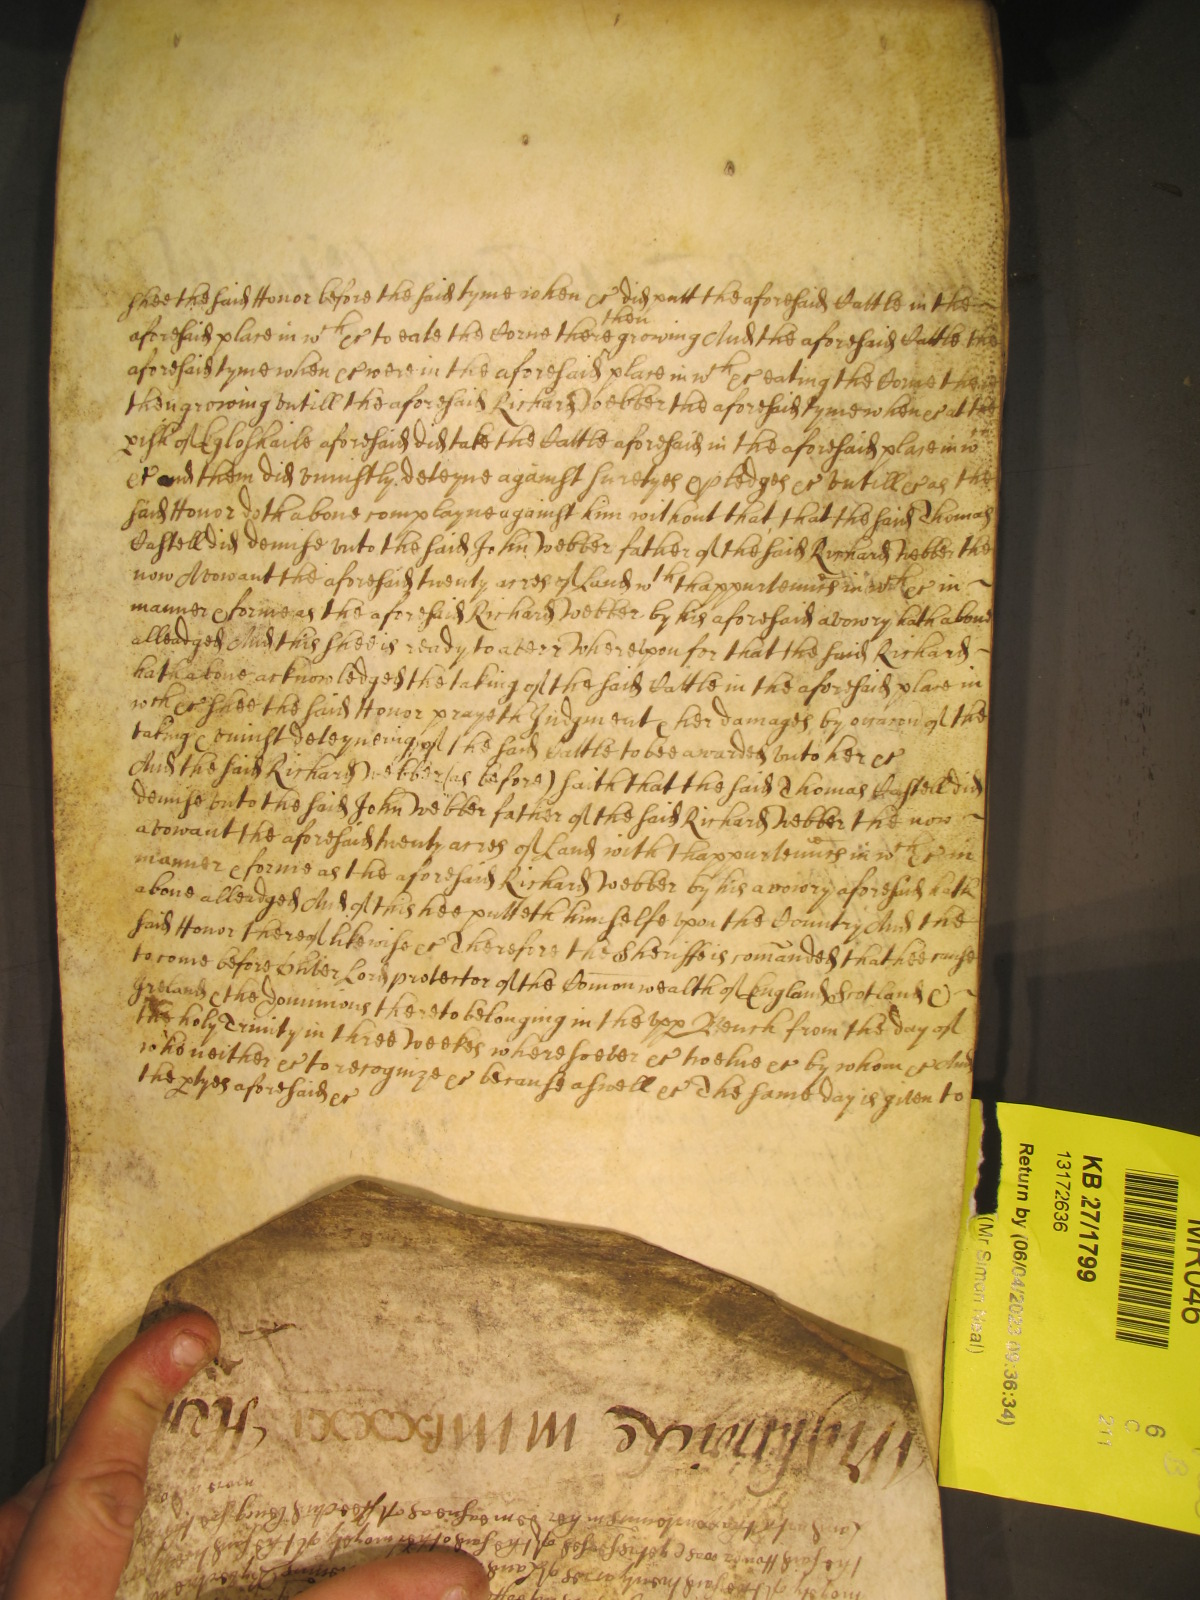 shee the said Honor before the said tyme when &c did putt the aforesaid Cattle in the
aforesaid place in wch &c to eate the Corne there then growing And the aforesaid Cattle the
aforesaid tyme when &c were in the aforesaid place in wch &c eating the Corne there
then growing untill the aforesaid Richard Webber the aforesaid tyme when &c at the
pish of Egloshaile aforesaid did take the Cattle aforesaid in the aforesaid place in wch
&c and them did uniustly deteyne against suretyes & pledges &c untill &c as the
said Honor doth above complayne against him without that that the said Thomas
Castell did demise unto the said John Webber father of the said Richard Webber the
now Avowant the aforesaid twenty acres of Land wth thappurtenncs in wch &c in
manner & forme as the aforesaid Richard Webber by his aforesaid avowry hath above
alleadged And this shee is ready to averr Whereupon for that the said Richard
hath above acknowledged the taking of the said Cattle in the aforesaid place in
wch &c shee the said Honor prayeth Judgment & her damages by occacon of the
taking & uniust deteyneing of the said Cattle to bee awarded unto her &c
And the said Richard Webber (as before) saith that the said Thomas Castell did
demise unto the said John Webber father of the said Richard Webber the now
avowant the aforesaid twenty acres of Land with thappurtenncs in wch &c in
manner & forme as the aforesaid Richard Webber by his avowry aforesaid hath
above alleadged And of this hee putteth himselfe upon the Country And the
said Honor thereof likewise &c Therefore the Sheriffe is comanded that hee cause
to come before Oliver Lord protector of the Comonwealth of England Scotland &
Ireland & the dominions thereto belonging in the upp Bench from the day of
the holy Trinity in three Weekes wheresoever &c twelve &c by whom &c And
who neither &c to recognize &c because aswell &c The same day is given to
the ptyes aforesaid &c
KB 27/1799
13172636
Return by (06/04/2023 09:36:34)
6
C
211